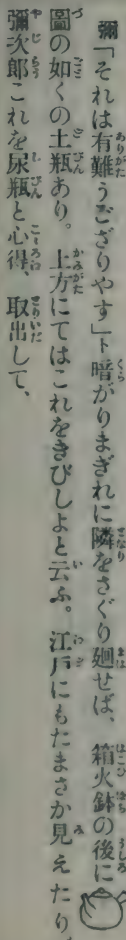 彌「それは有難うござりやす」ト暗がりまぎれに隣をさぐり廻せば、箱火鉢の後に
圖の如くの土瓶あり。上方にてはこれをきびしよと云ふ。江戸にもたまさか見えたり、
彌次郎これを尿瓶と心得、取出して、